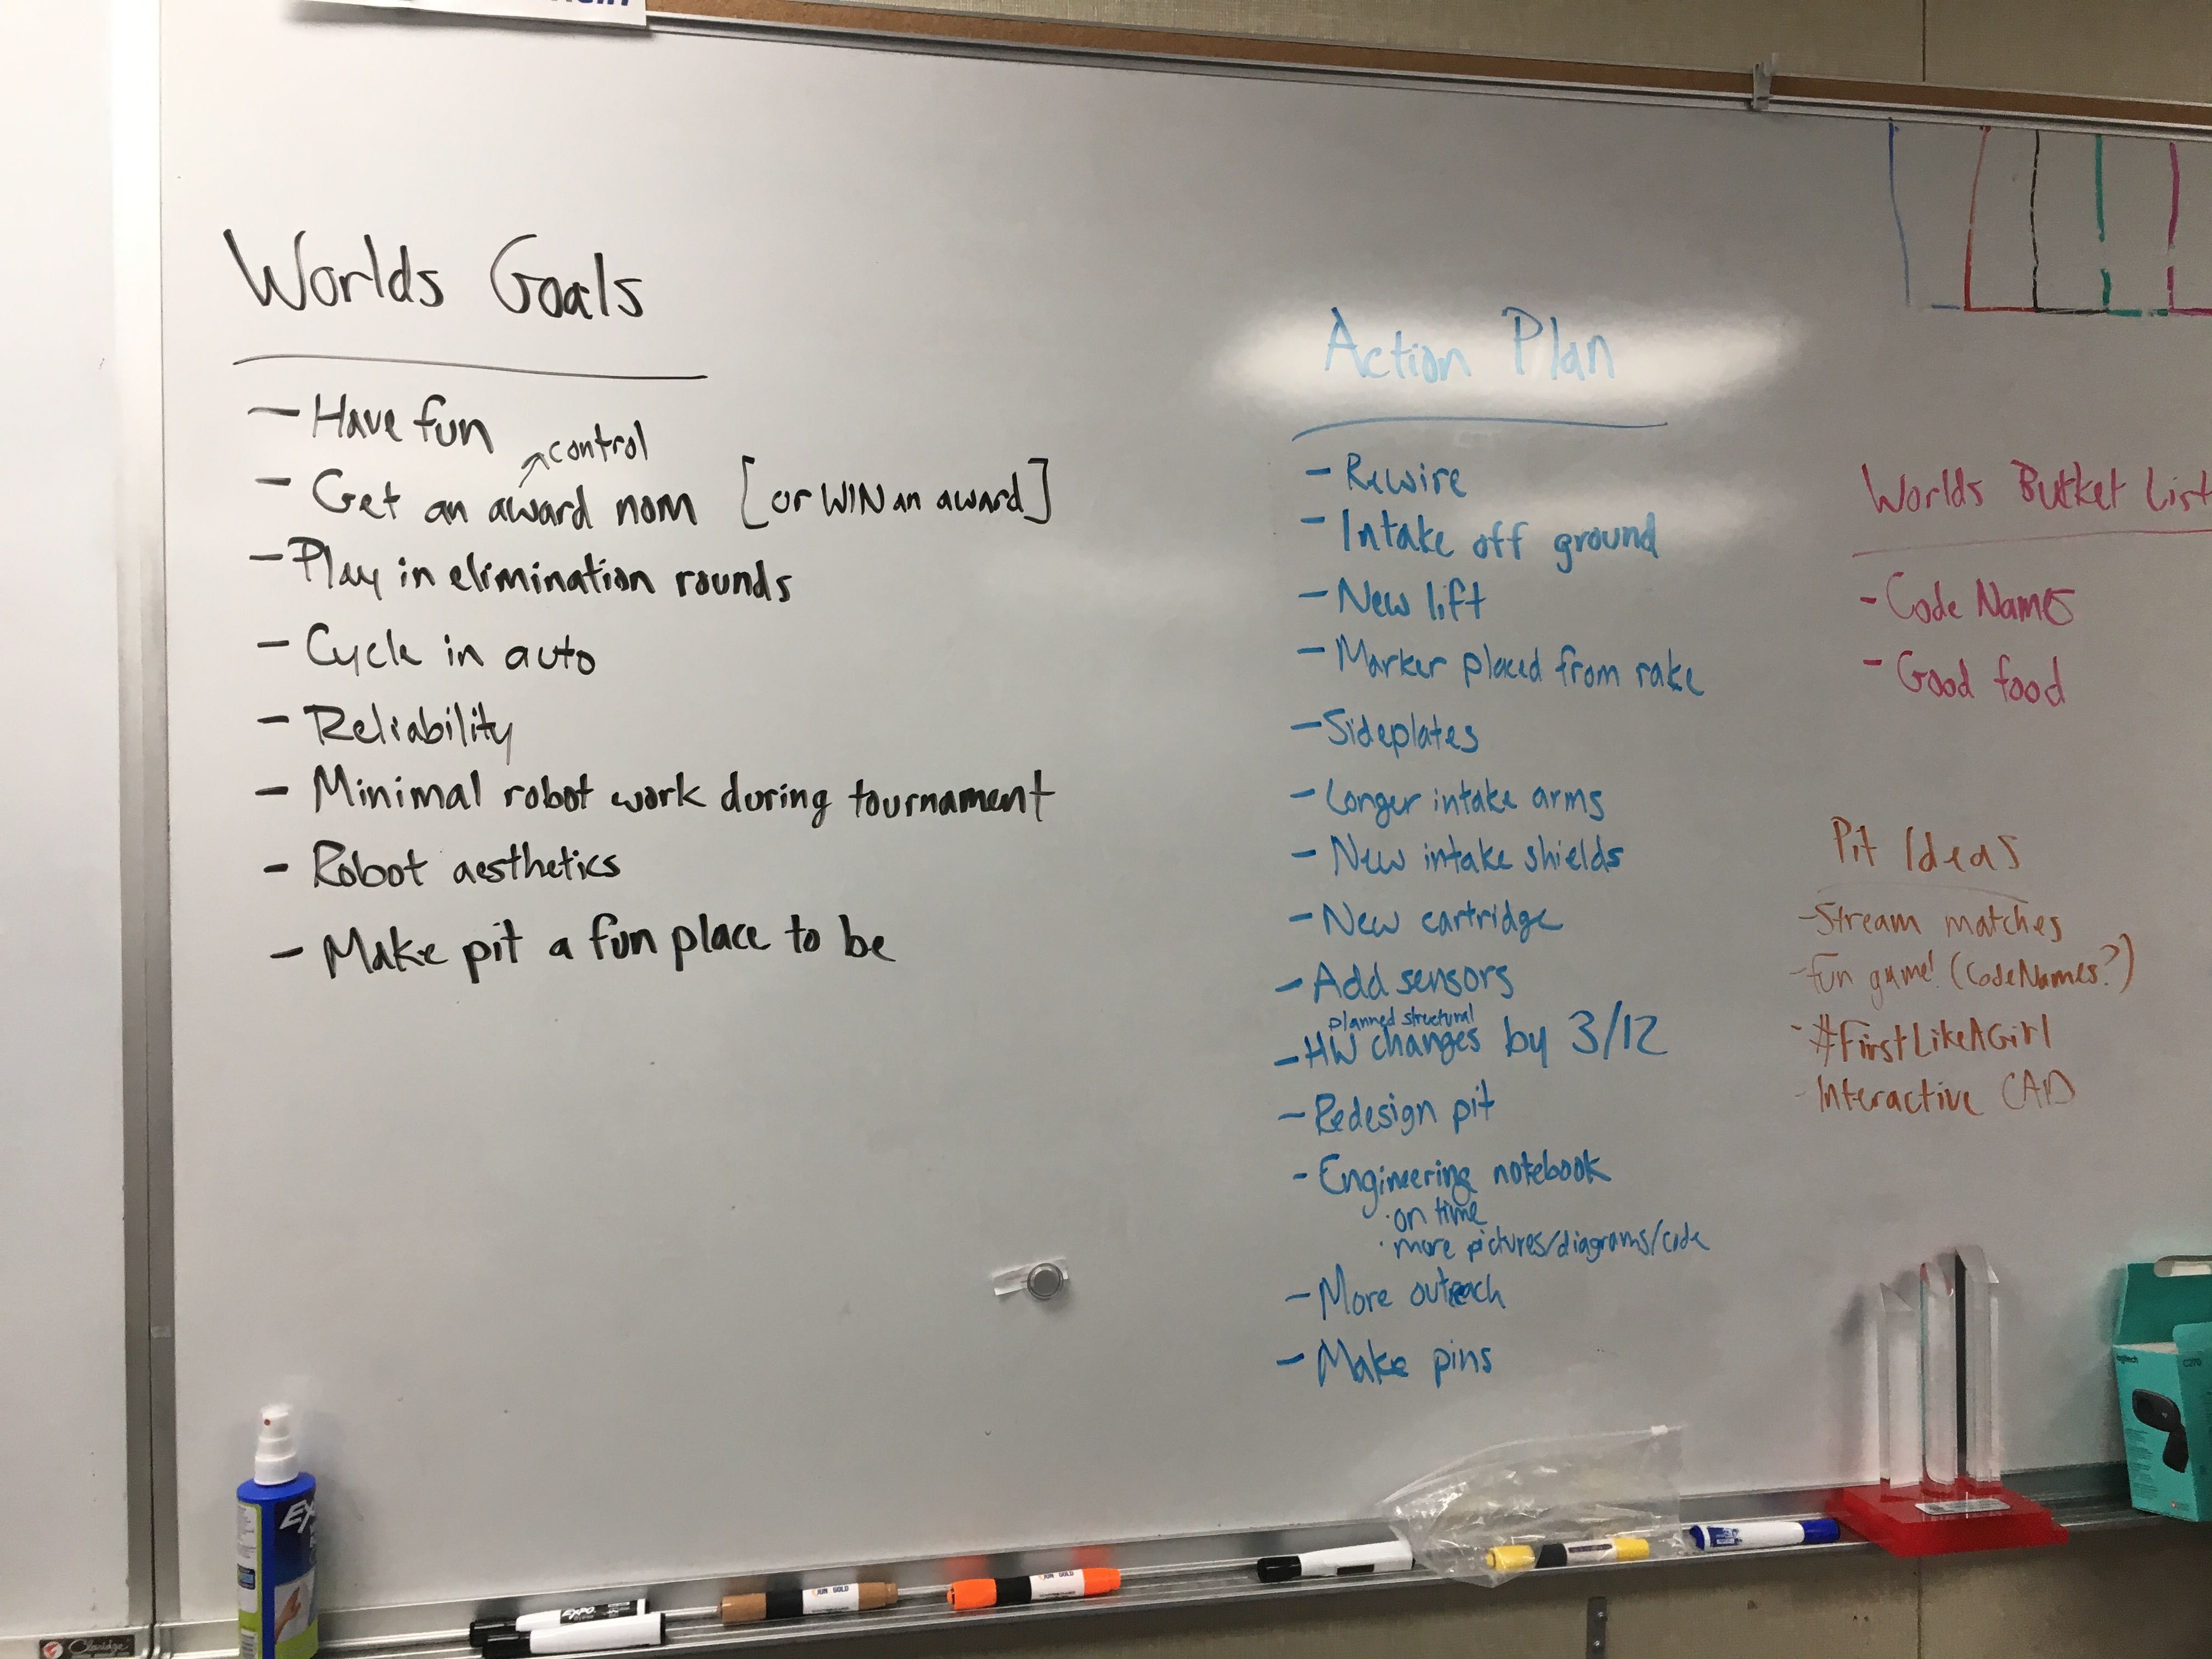 Worlds Goals
- Have fun
control
- Get an award nom [or WIN an award]
- Play in elimination rounds
- Cycle in auto
- Reliability
- Minimal robot work during tournament
- Robot aesthetics
- Make pit a fun place to be
Action Plan
- Rewire
- Intake off ground
- New lift
- Marker placed from rake
- Sideplates
- Longer intake arms
- New intake shields
- New cartridge
- Add sensors
planned structural
- HW changes by 3/12
- Redesign pit
- Engineering notebook
· on time
· more pictures/diagrams/code
- More outreach
- Make pins
Worlds Bucket List
- Code Names
- Good food
Pit Ideas
- Stream matches
- fun game! (CodeNames?)
- #FirstLikeAGirl
- Interactive CAD
EXPO
JUN GOLD
JUN GOLD
logitech
C270
Claridge